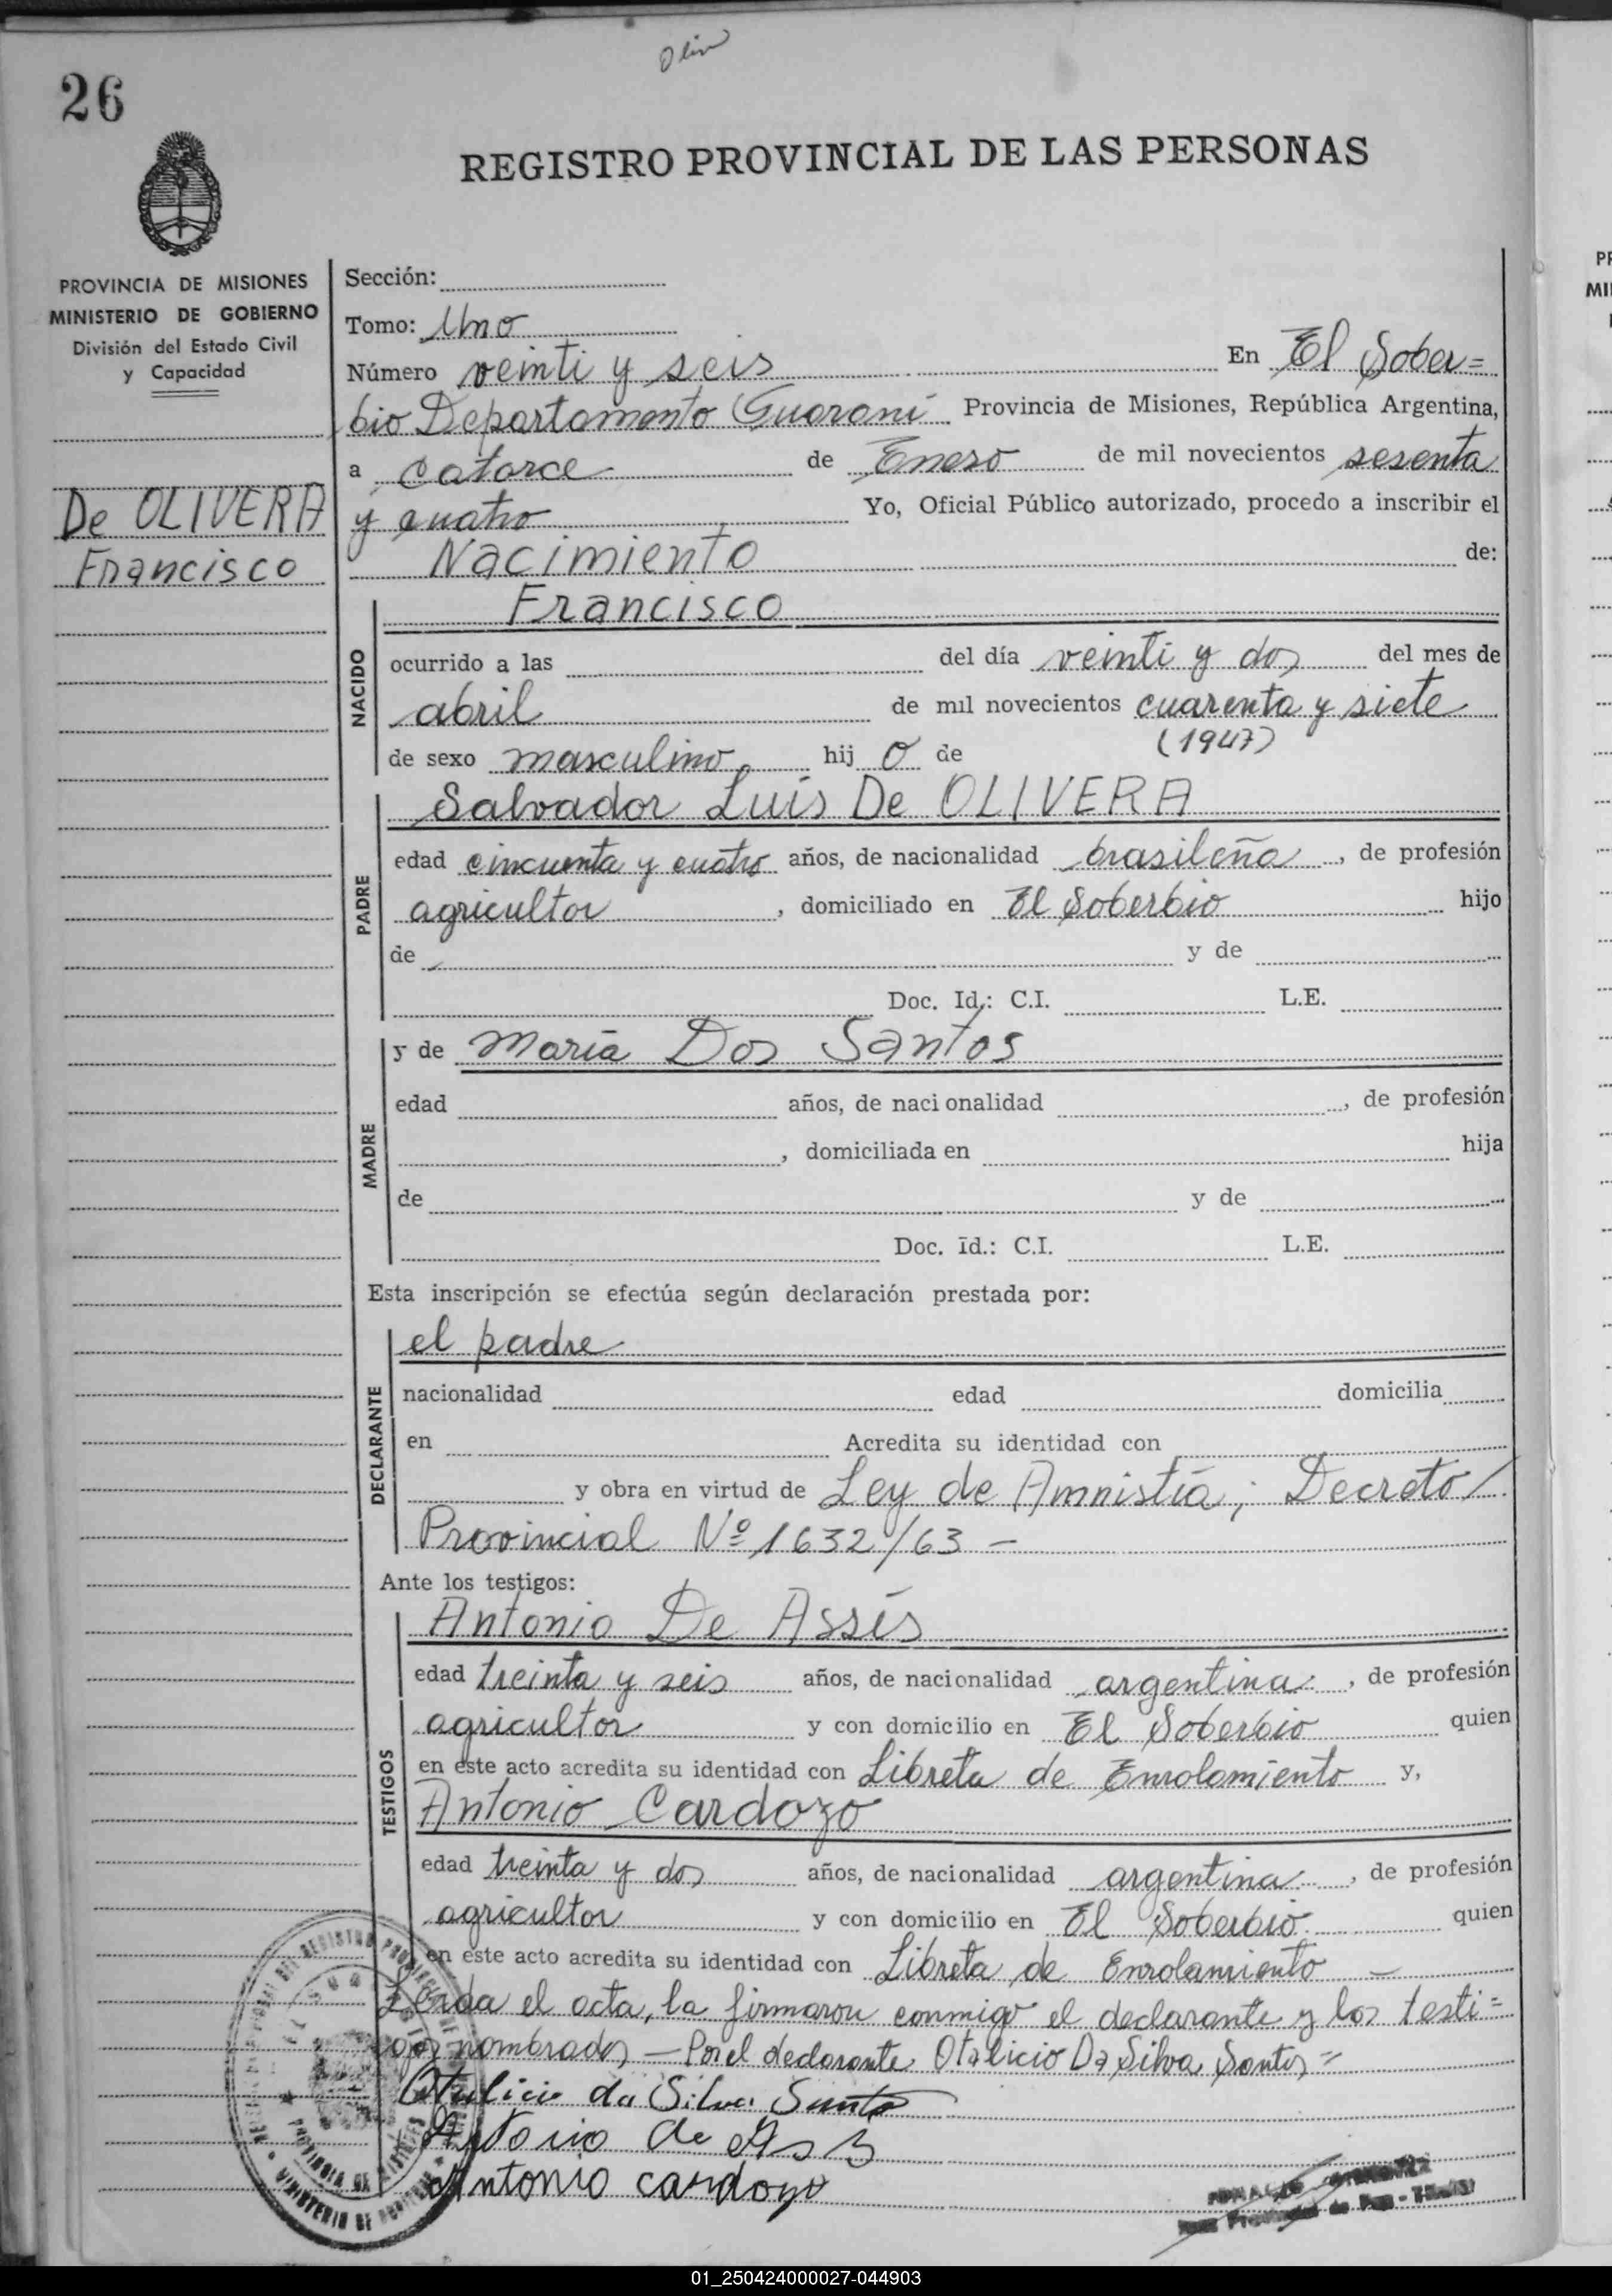 Oliv
26
REGISTRO PROVINCIAL DE LAS PERSONAS
PROVINCIA DE MISIONES
MINISTERIO DE GOBIERNO
División del Estado Civil
y Capacidad
De OLIVERA
Francisco
Sección:
Tomo: Uno
Número veinti y seis En El Sober=
bio Departamento Guaraní Provincia de Misiones, República Argentina,
a catorce de Enero de mil novecientos sesenta
y cuatro Yo, Oficial Público autorizado, procedo a inscribir el
Nacimiento de:
NACIDO
Francisco
ocurrido a las del día veinti y dos del mes de
abril de mil novecientos cuarenta y siete
(1947)
de sexo masculino hij o de
PADRE
Salvador Luis De OLIVERA
edad cincuenta y cuatro años, de nacionalidad brasileña, de profesión
agricultor, domiciliado en El Soberbio hijo
de y de
Doc. Id.: C.I. L.E.
MADRE
y de María Dos Santos
edad años, de nacionalidad , de profesión
, domiciliada en hija
de y de
Doc. Id.: C.I. L.E.
Esta inscripción se efectúa según declaración prestada por:
DECLARANTE
el padre
nacionalidad edad domicilia
en Acredita su identidad con
y obra en virtud de Ley de Amnistía; Decreto/
Provincial Nº 1632/63 -
Ante los testigos:
TESTIGOS
Antonio De Assís
edad treinta y seis años, de nacionalidad argentina, de profesión
agricultor y con domicilio en El Soberbio quien
en este acto acredita su identidad con Libreta de Enrolamiento y,
Antonio Cardozo
edad treinta y dos años, de nacionalidad argentina, de profesión
agricultor y con domicilio en El Soberbio. quien
en este acto acredita su identidad con Libreta de Enrolamiento -
Leida el acta, la firmaron conmigo el declarante y los testi=
gos nombrados - Por el declarante Otalicio Da Silva Santos=
Otalicio da Silva Santo
Antonio de
Antonio cardozo
PROVINCIA DE MISIONES
MINISTERIO DE GOBIERNO
01_250424000027-044903